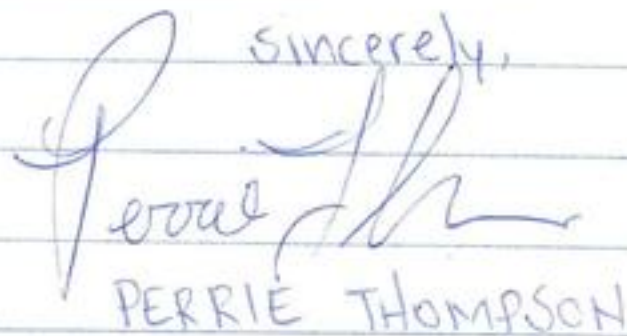 sincerely,
Perrie Th
PERRIE THOMPSON